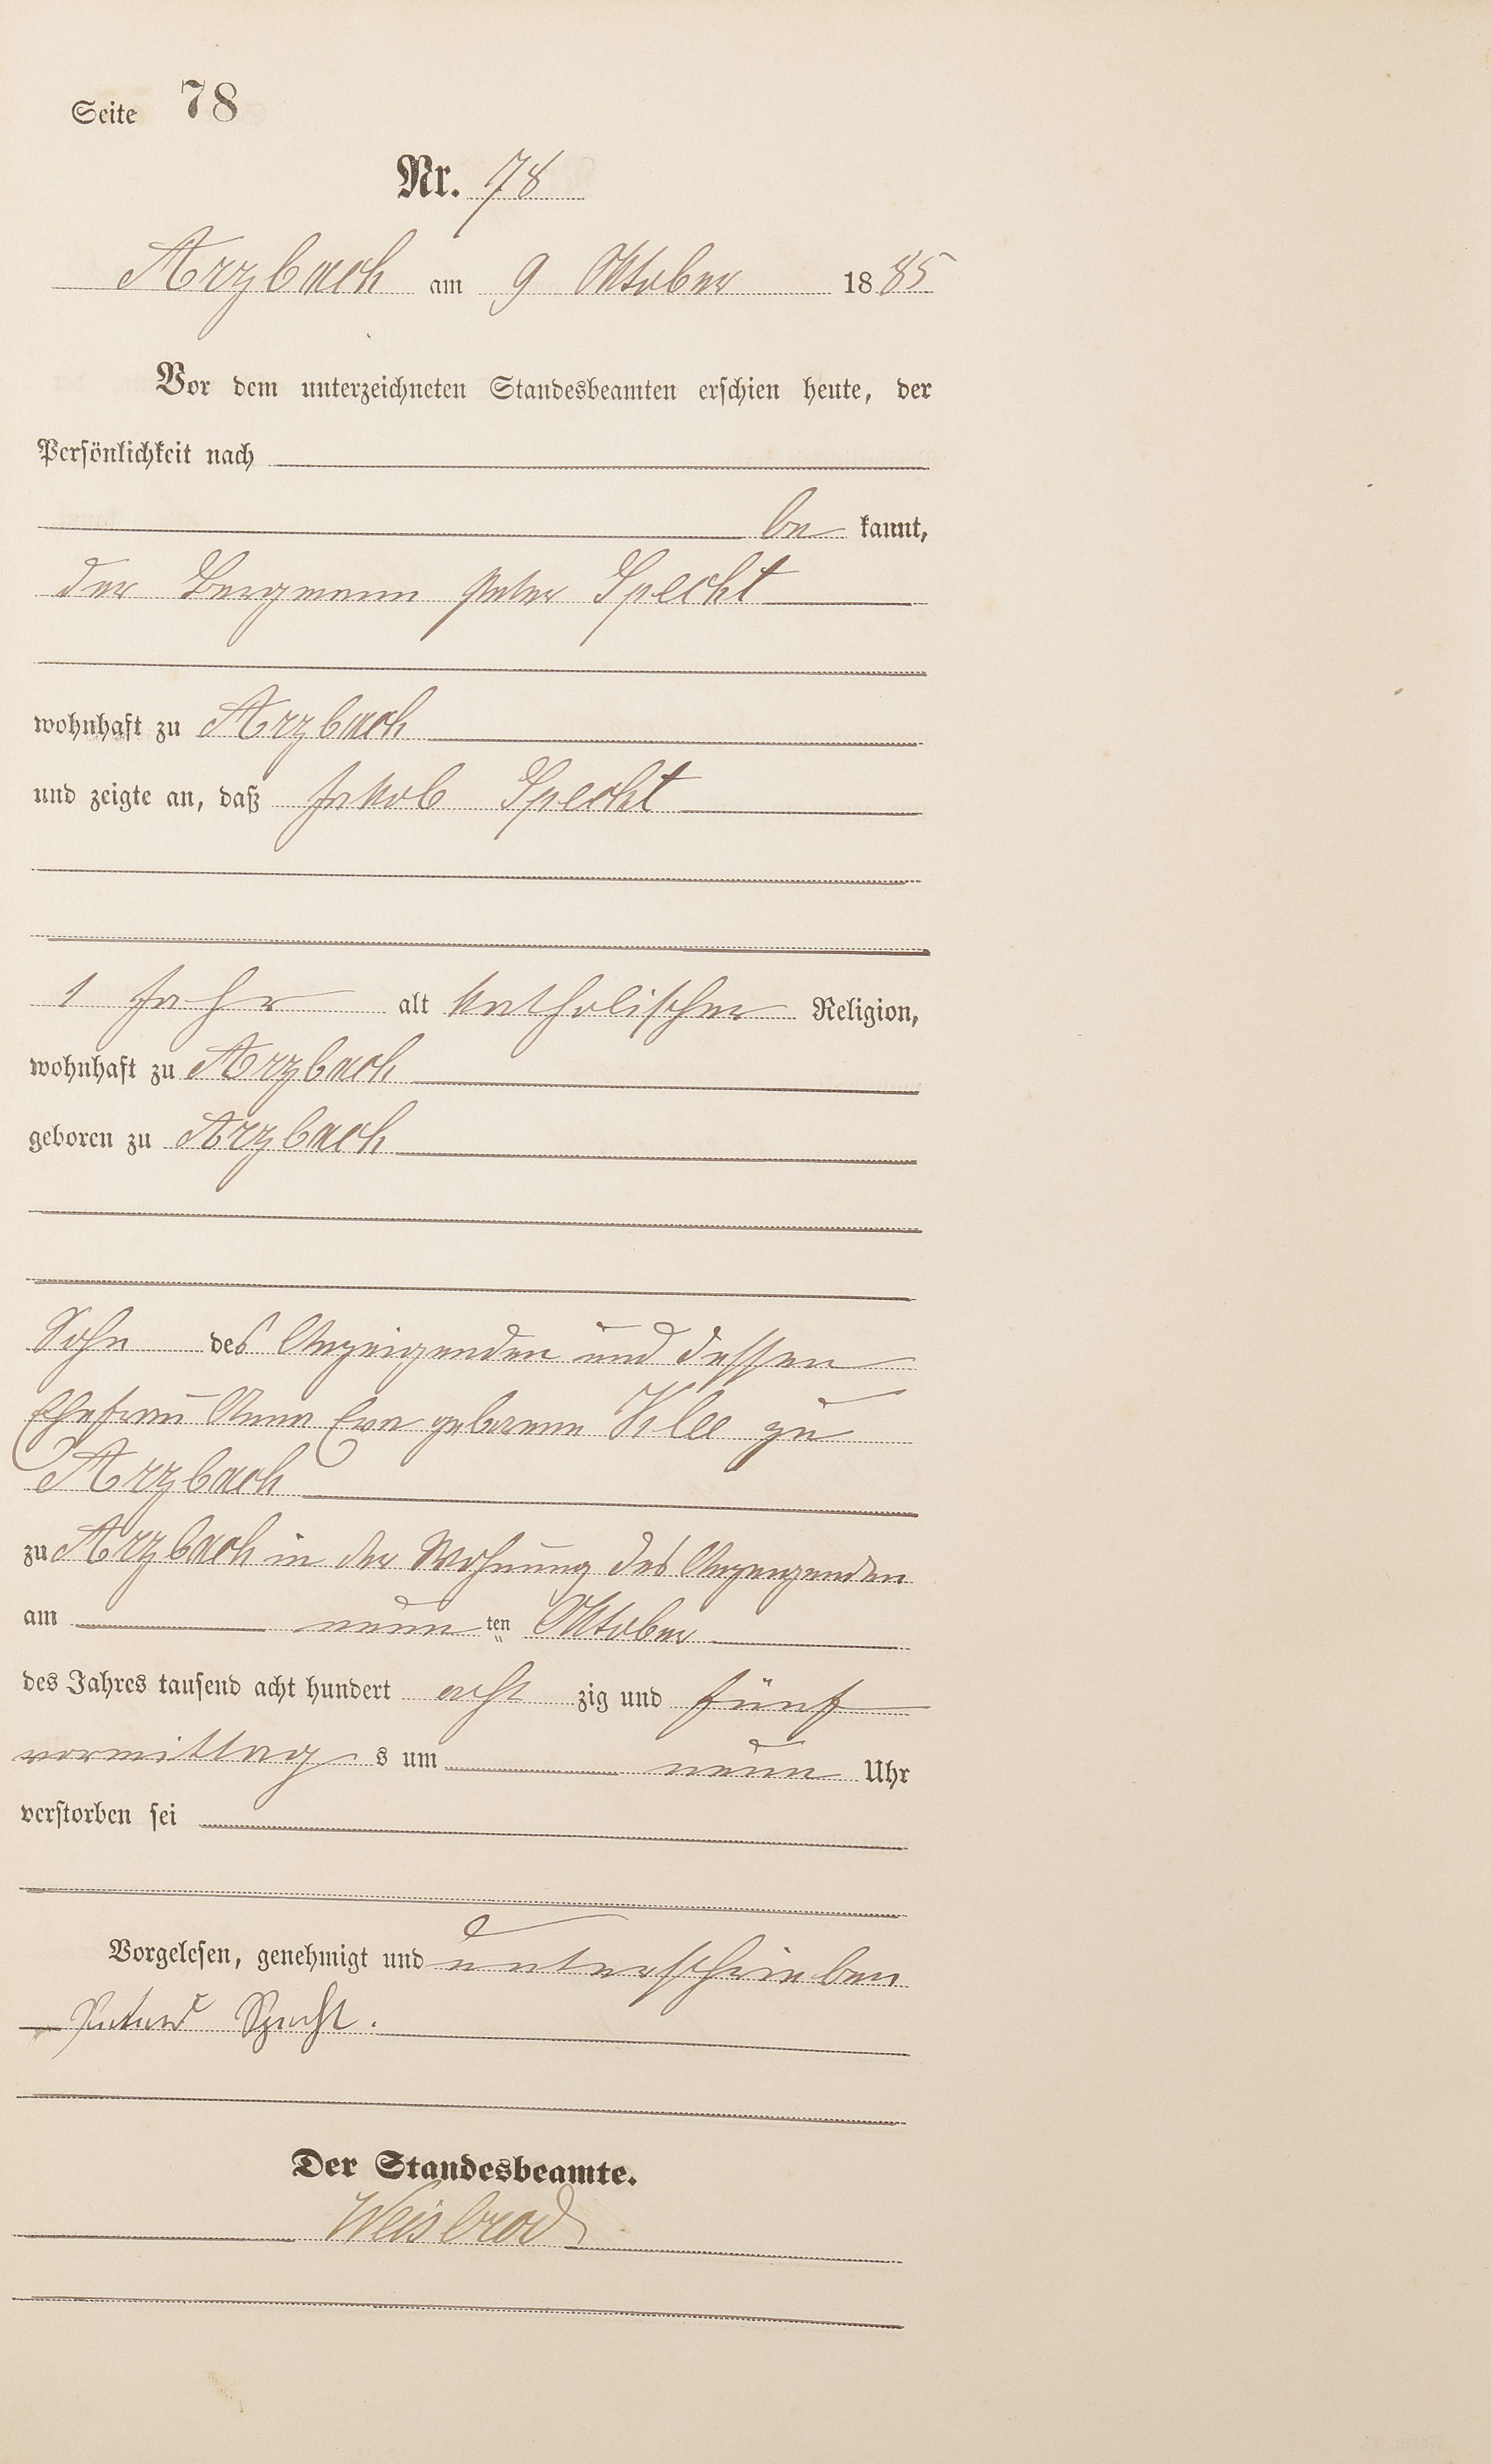 Seite 78
Nr. 78
Arzbach am 9 Oktober 1885
Vor dem unterzeichneten Standesbeamten erschien heute, der
Persönlichkeit nach
be kannt,
der Bergmann Peter Specht
wohnhaft zu Arzbach
und zeigte an, daß Jakob Specht
1 Jahr alt katholischer Religion,
wohnhaft zu Arzbach
geboren zu Arzbach
Sohn des Anzeigenden und dessen
Ehefrau Anna Eva geborene Klee zu
Arzbach
zu Arzbach in der Wohnung des Anzeigenden
am neun ten Oktober
des Jahres tausend acht hundert acht zig und fünf
vormittag s um neun Uhr
verstorben sei
Vorgelesen, genehmigt und unterschrieben
Peter Specht.
Der Standesbeamte.
Weisbrod